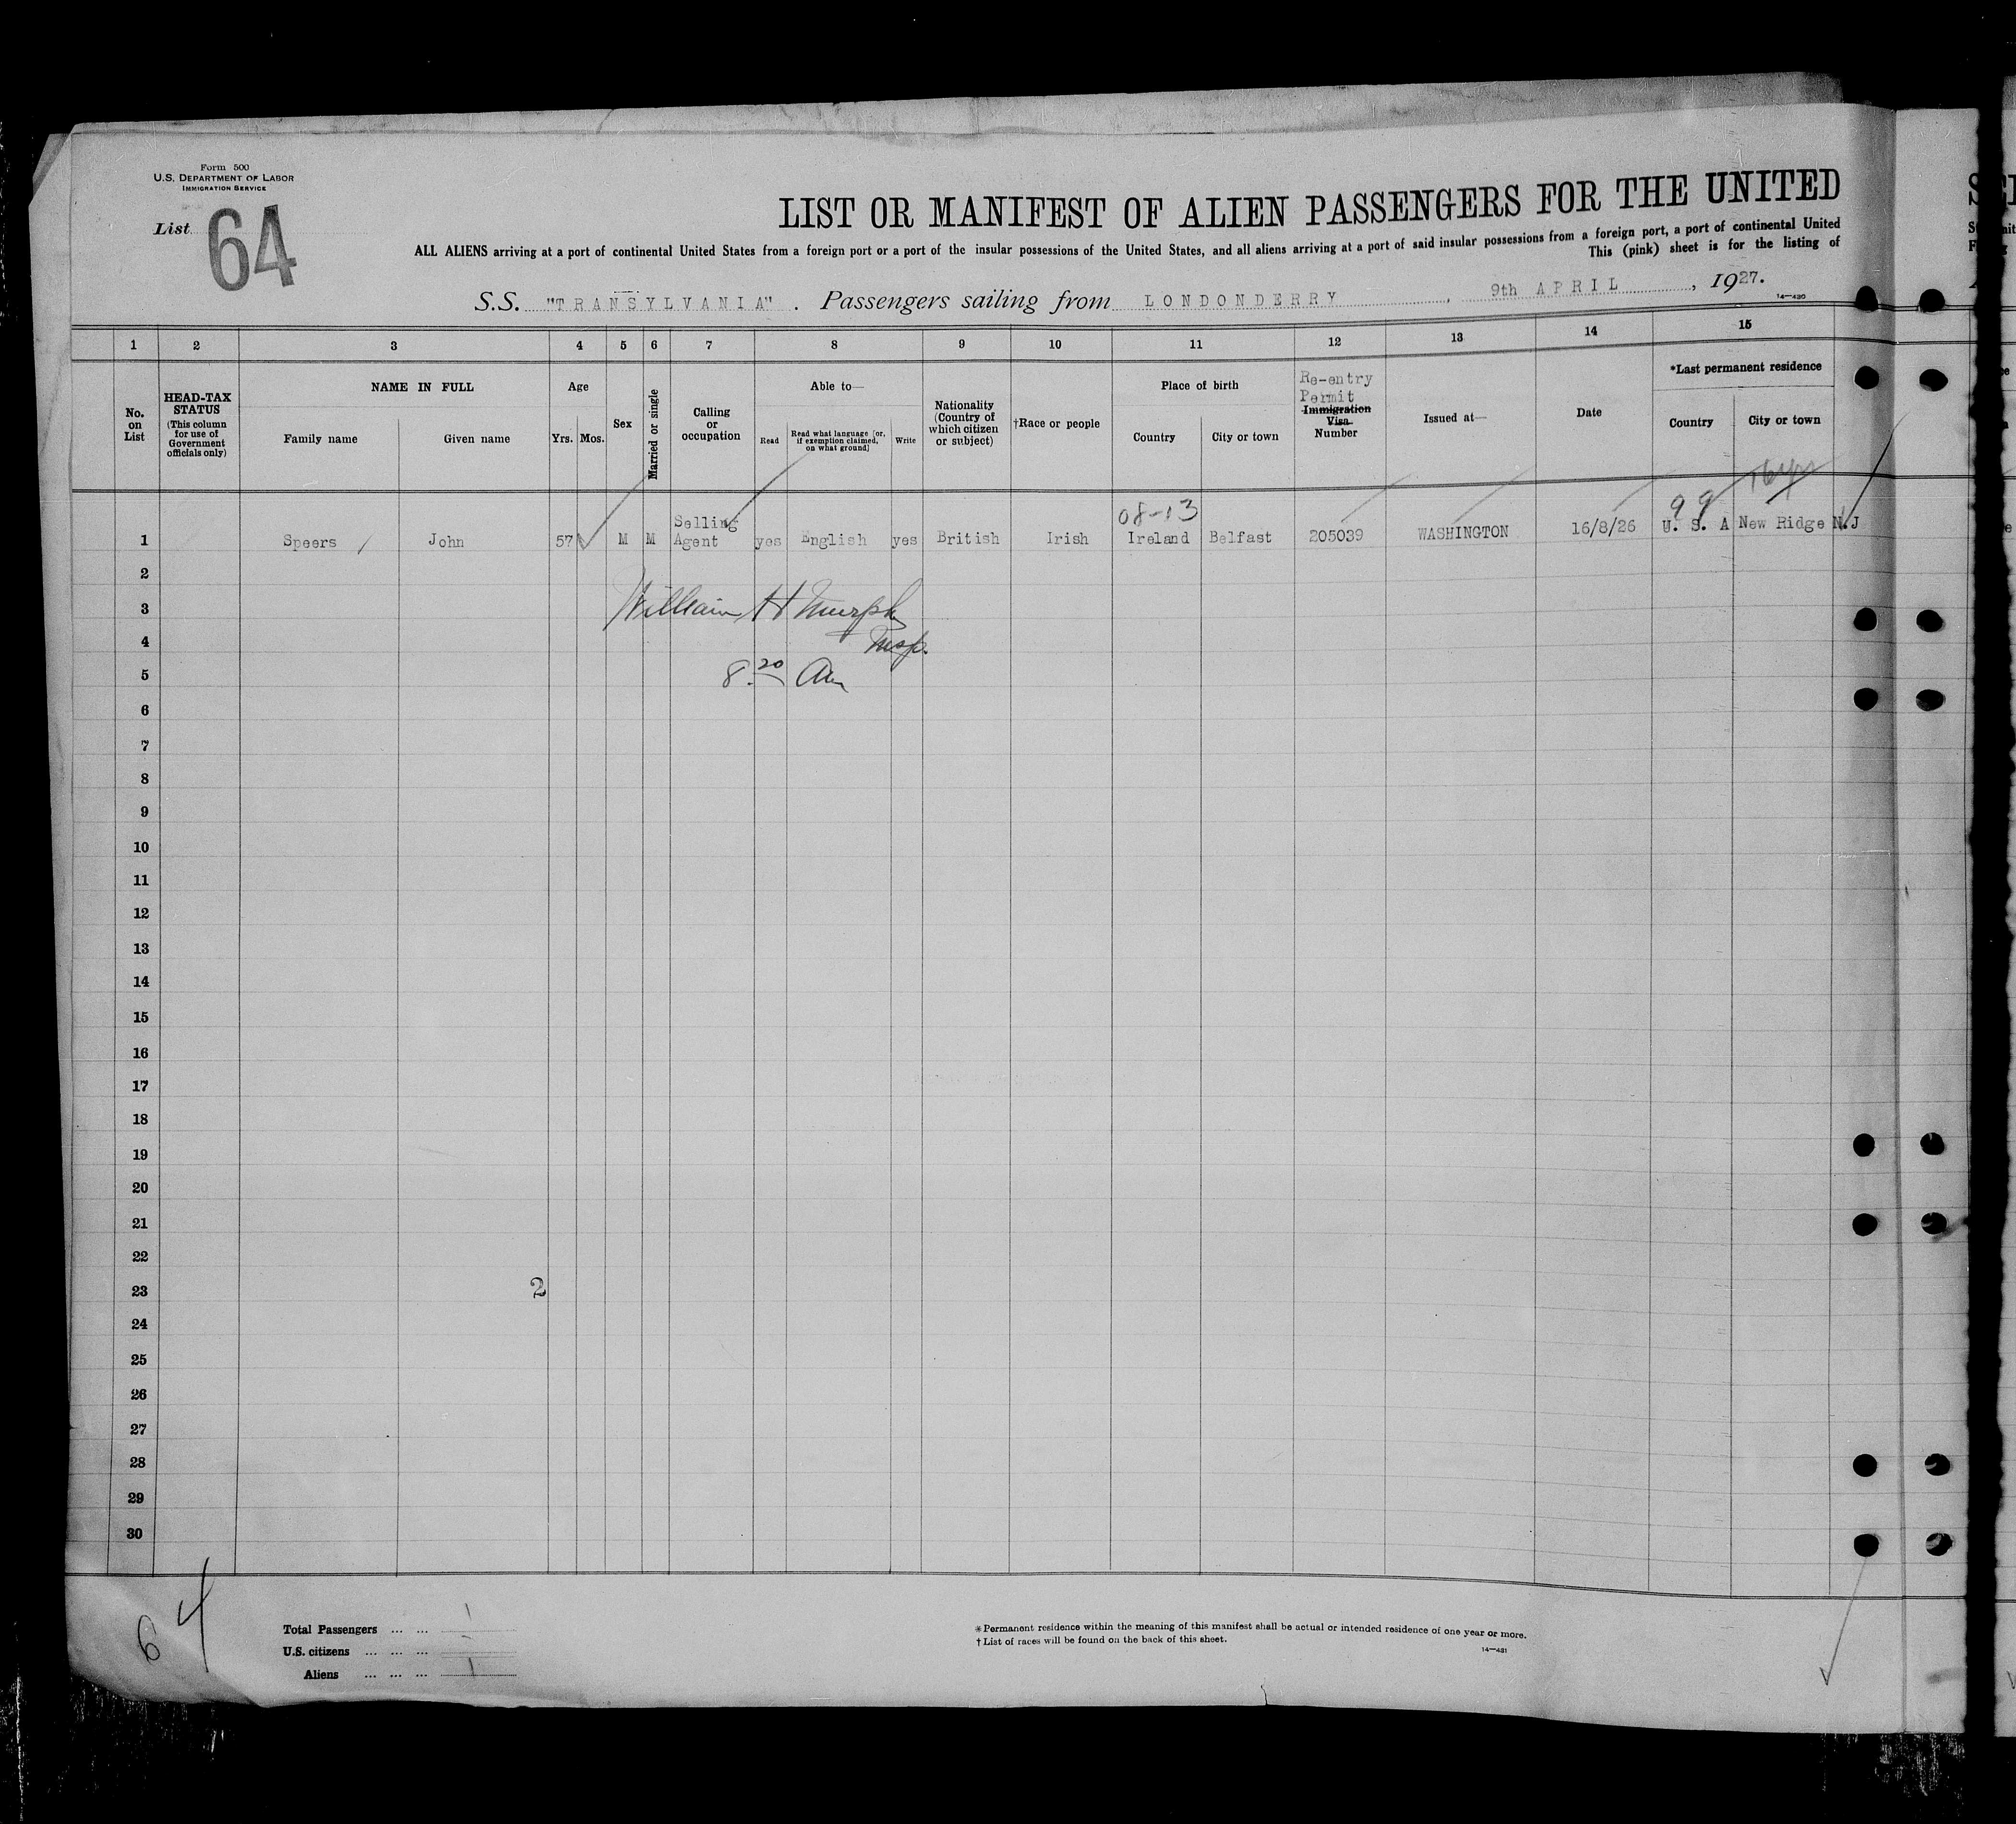 Form 500
U.S. DEPARTMENT OF LABOR
IMMIGRATION SERVICE
List 64
LIST OR MANIFEST OF ALIEN PASSENGERS FOR THE UNITED
ALL ALIENS arriving at a port of continental United States from a foreign port or a port of the insular possessions of the United States, and all aliens arriving at a port of said insular possessions from a foreign port, a port of continental United
This (pink) sheet is for the listing of
S.S. "TRANSYLVANIA". Passengers sailing from LONDONDERRY, 9th APRIL, 1927.
14—430
1 2 3 4 5 6 7 8 9 10 11 12 13 14 15
No. on List
HEAD-TAX STATUS (This column for use of Government officials only)
NAME IN FULL
Family name
Given name
Age
Yrs. Mos.
Sex
Married or single
Calling or occupation
Able to—
Read
Read what language [or, if exemption claimed, on what ground]
Write
Nationality (Country of which citizen or subject)
†Race or people
Place of birth
Country
City or town
Re-entry Permit
Immigration Visa Number
Issued at—
Date
*Last permanent residence
Country
City or town
08-13 99
1 Speers John 57 M M Selling Agent yes English yes British Irish Ireland Belfast 205039 WASHINGTON 16/8/26 U. S. A New Ridge N.J
2
3
William H Murphy
4
Insp.
5
8.20 Am
6
7
8
9
10
11
12
13
14
15
16
17
18
19
20
21
22
23 2
24
25
26
27
28
29
30
64
Total Passengers ... ... 1
U.S. citizens ... ... ... -
Aliens ... ... ... 1
*Permanent residence within the meaning of this manifest shall be actual or intended residence of one year or more.
†List of races will be found on the back of this sheet.
14—431